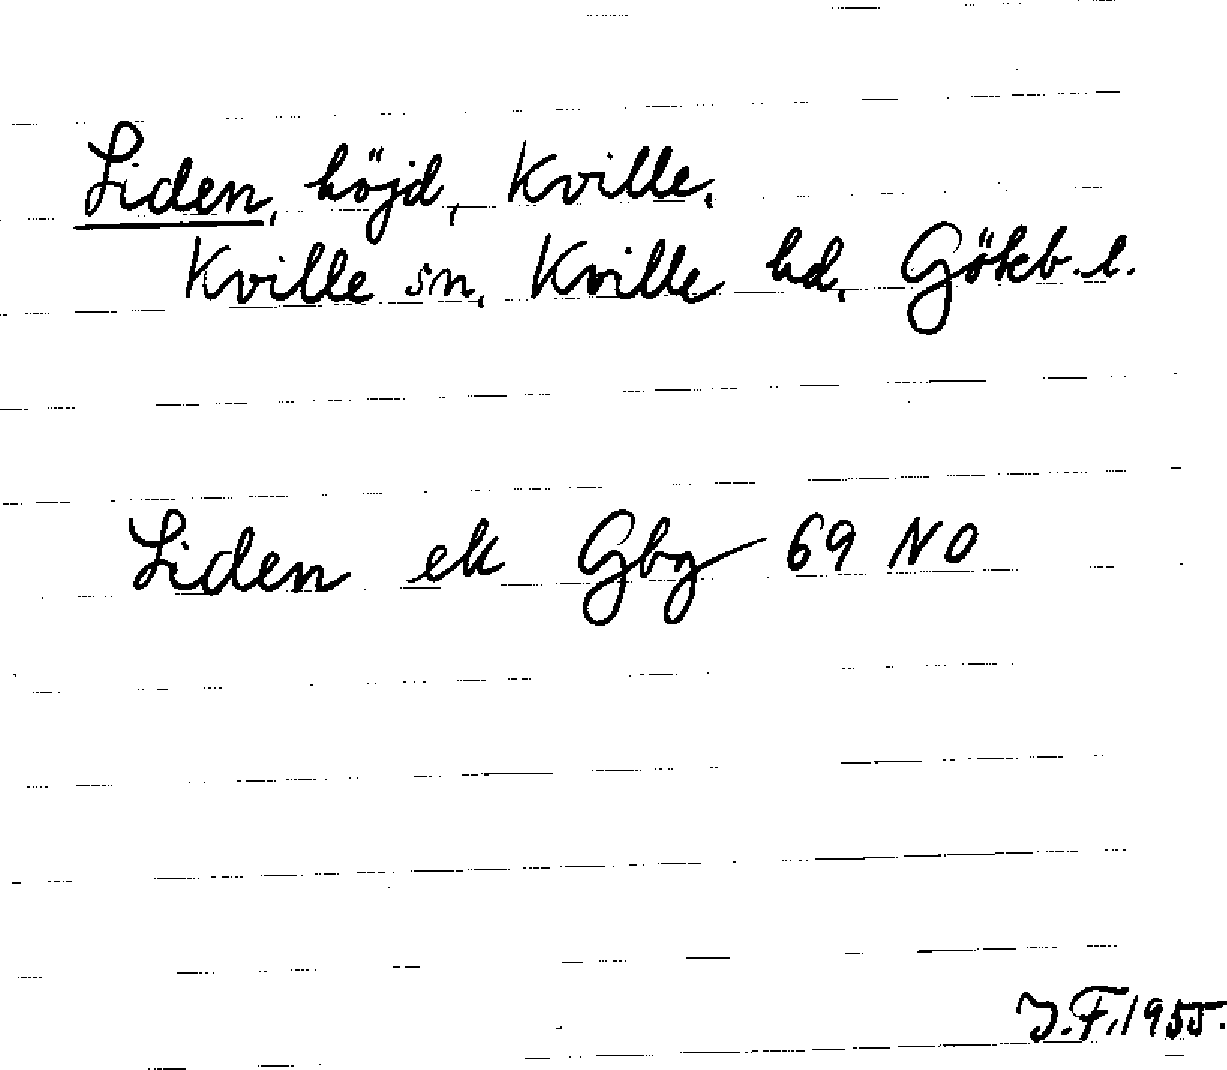 Liden, höjd, Kville,
Kville sn, Kville hd, Göteb. l.
Liden ek Gbg 69 NO
J.F. 1955.